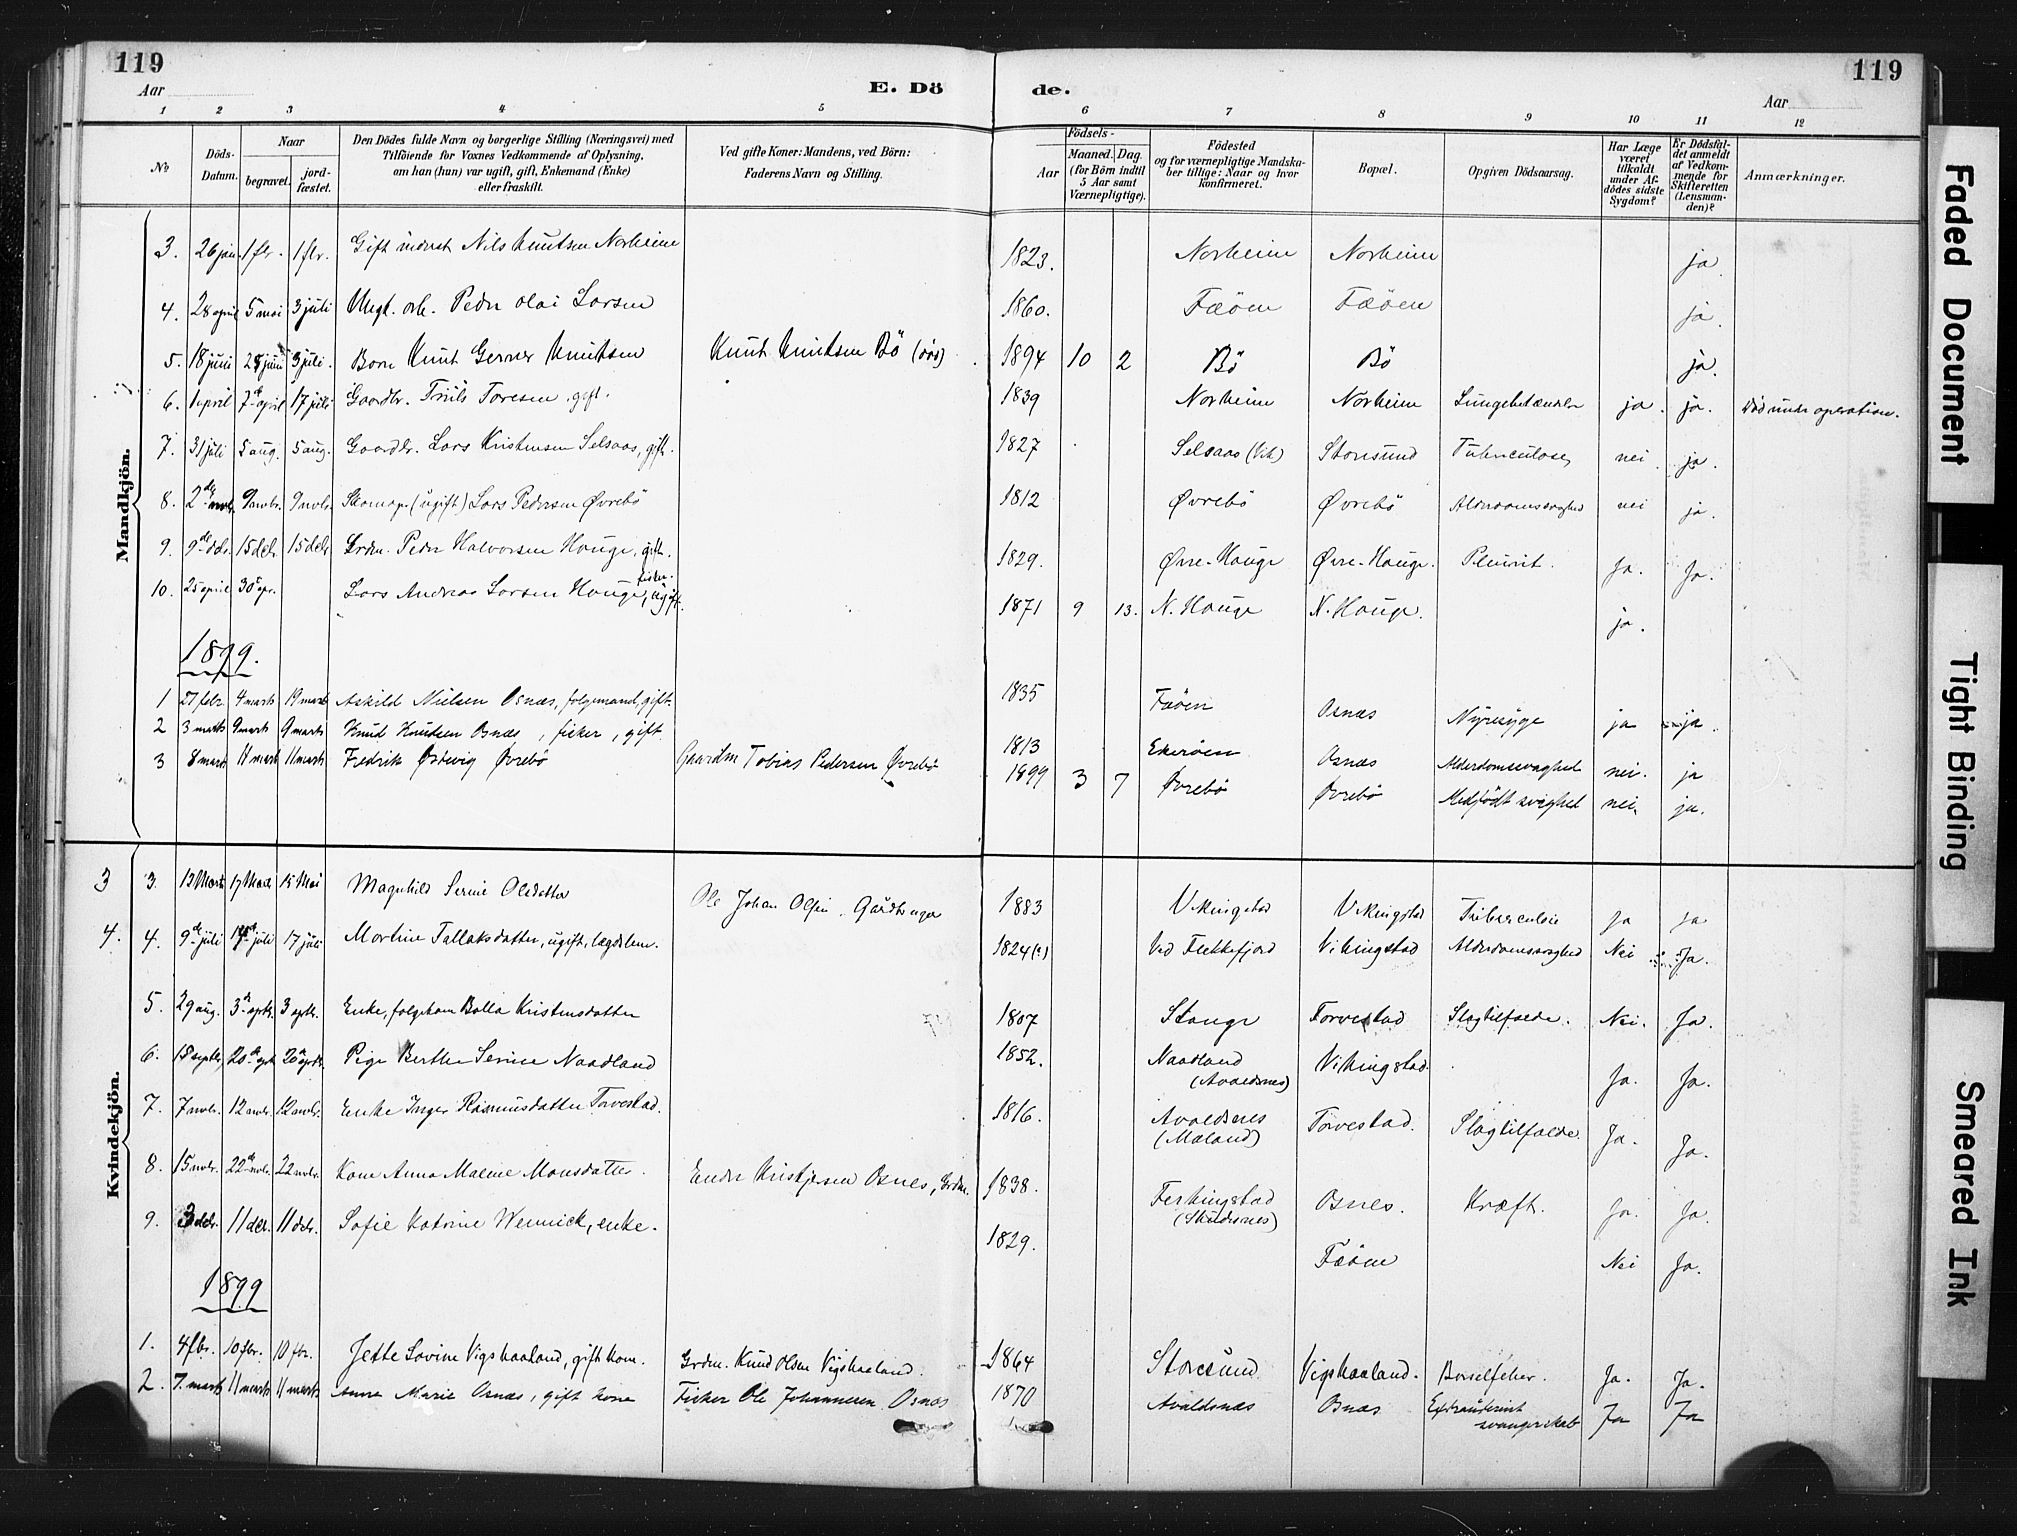 119
119
Aar
E. Dö
de.
Aar
1 2 3 4 5 6 7 8 9 10 11 12
No
Döds-Datum.
Naar
begravet.
jord-fæstet.
Den Dödes fulde Navn og borgerlige Stilling (Næringsvei) med
Tilföiende for Voxnes Vedkommende af Oplysning,
om han (hun) var ugift, gift, Enkemand (Enke)
eller fraskilt.
Ved gifte Koner: Mandens, ved Börn:
Faderens Navn og Stilling.
Födsels-
Aar
Maaned. Dag.
(for Börn indtil
5 Aar samt
Værnepligtige).
Födested
og for værnepligtige Mandska-
ber tillige: Naar og hvor
konfirmeret.
Bopæl.
Opgiven Dödsaarsag.
Har Læge
været
tilkaldt
under Af-
dödes sidste
Sygdom?
Er Dödsfal-
det anmeldt
af Vedkom-
mende for
Skifteretten
(Lensman-
den)?
Anmærkninger.
Mandkjön.
3. 26 jan. 1 fbr. 1 fbr. Gift inderst Nils Knutsen Norheim 1823. Norheim Norheim ja
4. 28 april 5 mai 3 juli Ungk. arb. Peder Olai Larsen 1860. Fæöen Fæöen ja.
5. 18 juni 28 juni 3 juli. Barn Knut Gerner Knutsen Knut Knutsen Bö 1894 10 2 Bö Bö ja.
6. 1 april 7de april 17 juli Gaardbr. Truls Toresen, gift. 1839 Norheim Norheim Lungebetændelse ja. ja. Död under operation.
7. 31 juli 5 aug. 5 aug. Gaardbr. Lars Kristensen Selsaas, gift. 1827 Selsaas (Vik.) Storesund Tuberculose nei. ja.
8. 2den novbr. 9 novbr. 9 novbr. (ugift) Lars Pedersen Øvrebö 1812 Øvrebö Øvrebö Alderdomssvaghed nei ja.
9. 9de dcbr. 15 dcbr. 15 dcbr. Grdm. Peder Halvorsen Hauge, gift. 1829. Øvre-Hauge Øvre-Hauge. Pleurit. Ja. Ja.
10. 25 april 30te apr. Lars Andreas Larsen Hauge, fisker. ugift. 1871 9 13. N. Hauge N. Hauge. ja.
1899.
1 27 febr. 4 marts 19 marts Askild Nielsen Osnæs, folgemand, gift. 1835 Fæöen Osnæs Nyresyge ja ja.
2 3 marts 9 marts 9 marts Knud Knudsen Osnæs, fisker, gift. 1813 Ekeröen Osnæs Alderdomssvaghed nei. ja
3 8 marts 11 marts 11 marts Fredrik Østevig Øvrebö Gaardm Tobias Pedersen Øvrebö 1899 3 7 Øvrebö Øvrebö Medfödt svaghed nei. ja.
Kvindekjön.
3 3. 13 Marts 17 Marts 15 Mai Magnhild Serine Olsdatter Ole Johan Olsen. Gårdbruger 1883 Vikingstad Vikingstad Tuberculose Ja ja
4. 4. 9de juli 17 juli 17 juli Martine Tallaksdatter, ugift, lægdslem. 1824 (?) Ved Flekkefjord Vikingstad Alderdomssvaghed Nei Ja.
5. 29 aug. 3de septb. 3 septb. Enke, folgekone Bolla Kristensdatter 1807 Stange Torvestad Slagtilfælde. Nei. Ja.
6. 15 septb. 20de septb. 20de septb. Pige Berthe Serine Naadland 1852. Naadland (Avaldsnes) Vikingstad. Ja. Ja.
7. 7 novbr. 12 novbr. 12 novbr. Enke Inger Rasmusdatter Torvestad. 1816. Avaldsnes (Mæland) Torvestad. Slagtilfælde. Ja. Ja.
8. 15 novbr. 22de novbr. 22 novbr. Kone Anna Malene Monsdatter. Endre Kristjesen Osnes, Grdm. 1838. Ferkingstad (Skudesnes) Osnes. Kræft. Ja. Ja.
9. 3 dcbr. 11 dcbr. 11 dcbr. Sofie Katrine Wennick, enke. 1829. Fæöen Nei Ja.
1899
1. 4 fbr. 10 fbr. 10 fbr. Jette Lovine Vigshaaland, gift kone. Grdm. Knud Olsen Vigshaaland. 1864 Storesund Vigshaaland. Barselfeber. Ja. Ja.
2. 7. marts 11 marts 11 marts Anne Marie Osnæs, gift kone Fisker Ole Johannesen Osnæs 1870 Avaldsnæs Osnæs Extrauterint svangerskab Ja Ja
Faded Document
Tight Binding
Smeared Ink